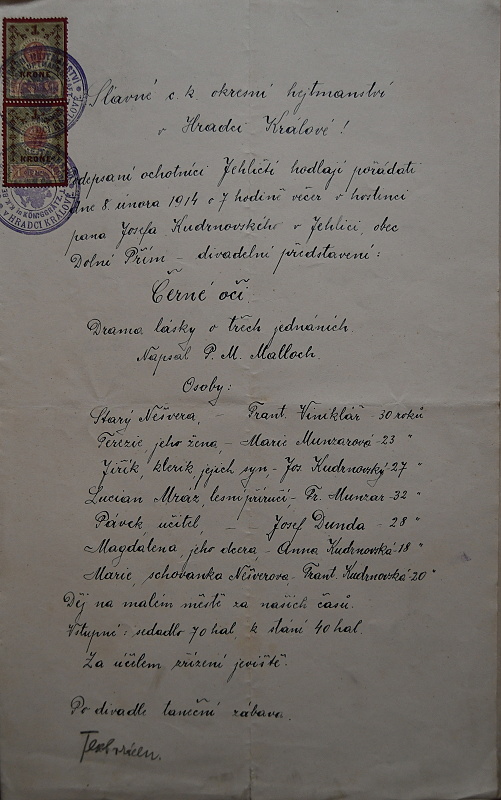 1
KRONE
KRONE
V HRADCI KRÁLOVÉ
Slavné c. k. okresní hejtmanství
v Hradci Králové!
Podepsaní ochotníci Jehličtí hodlají pořádati
dne 8. února 1914 o 7 hodině večer v hostinci
pana Josefa Kudrnovského v Jehlici, obec
Dolní Přím – divadelní představení:
Černé oči.
Drama lásky o třech jednáních.
Napsal P. M. Malloch.
Osoby:
Starý Nešvera, – Frant. Viniklář – 30 roků
Terezie, jeho žena, – Marie Munzarová – 23 "
Jiřík, klerik, jejich syn, – Jos. Kudrnovský – 27 "
Lucian Mráz, lesní příručí, Fr. Munzar – 32 "
Pávek, učitel, – – Josef Dunda – 28 "
Magdalena, jeho dcera, – Anna Kudrnovská – 18 "
Marie, schovanka Nešverova – Frant. Kudrnovská – 20 "
Děj na malém městě za našich časů.
Vstupné: sedadlo 70 hal. k stání 40 hal.
Za účelem zřízení jeviště.
Po divadle taneční zábava.